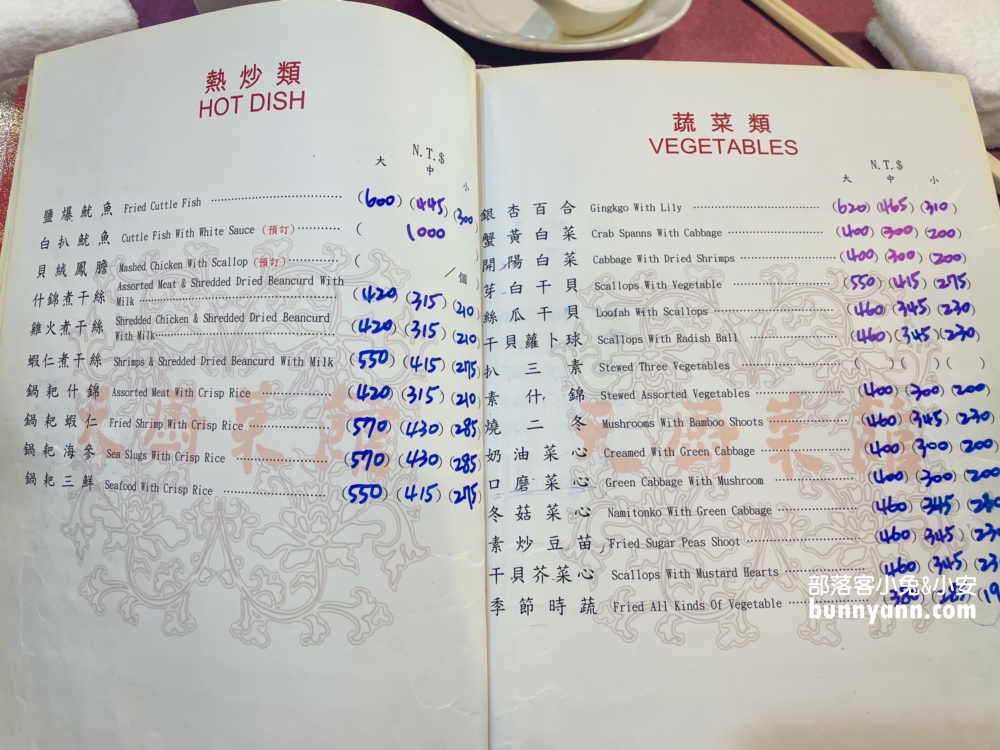 熱炒類
HOT DISH
N.T.$
大 中 小
鹽爆魷魚 Fried Cuttle Fish (600) (445) (300)
白扒魷魚 Cuttle Fish With White Sauce (預訂) ( 1000
貝絨鳳膽 Mashed Chicken With Scallop (預訂) ( /個)
什錦煮干絲 Assorted Meat & Shredded Dried Beancurd With
Milk (420) (315) (210)
雞火煮干絲 Shredded Chicken & Shredded Dried Beancurd
With Milk (420) (315) (210)
蝦仁煮干絲 Shrimps & Shredded Dried Beancurd With Milk (550) (415) (275)
鍋耙什錦 Assorted Meat With Crisp Rice (420) (315) (210)
鍋耙蝦仁 Fried Shrimp With Crisp Rice (570) (430) (285)
鍋耙海參 Sea Slugs With Crisp Rice (570) (430) (285)
鍋耙三鮮 Seafood With Crisp Rice (550) (415) (275)
蔬菜類
VEGETABLES
N.T.$
大 中 小
銀杏百合 Gingkgo With Lily (620) (465) (310)
蟹黃白菜 Crab Spanns With Cabbage (400) (300) (200)
開陽白菜 Cabbage With Dried Shrimps (400) (300) (200)
芽白干貝 Scallops With Vegetable (550) (415) (275)
絲瓜干貝 Loofah With Scallops (460) (345) (230)
干貝蘿卜球 Scallops With Radish Ball (460) (345) (230)
扒三素 Stewed Three Vegetables ( ) ( ) ( )
素什錦 Stewed Assorted Vegetables (400) (300) (200)
燒二冬 Mushrooms With Bamboo Shoots (460) (345) (230)
奶油菜心 Creamed With Green Cabbage (400) (300) (200
口磨菜心 Green Cabbage With Mushroom (400) (300) (200
冬菇菜心 Namitonko With Green Cabbage (460) (345) (230
素炒豆苗 Fried Sugar Peas Shoot (460) (345) (230
干貝芥菜心 Scallops With Mustard Hearts (460) (345) (23
季節時蔬 Fried All Kinds Of Vegetable (380) (285) (19
天廚菜館
部落客小兔&小安
bunnyann.com